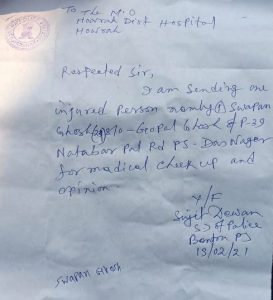 To
The M.O
Howrah Dist Hospital
Howrah
Respeated Sir,
I am Sending one
injured Person namly ① Swapan
Ghosh S/O - Gopal Ghosh of P-39
Natabar Pal Rd PS - Das Nagar
for madical Cheek up and
opinion
Y/F
Sujit Dewan
SI of Police
PS
13/02/21
Swapan Ghosh